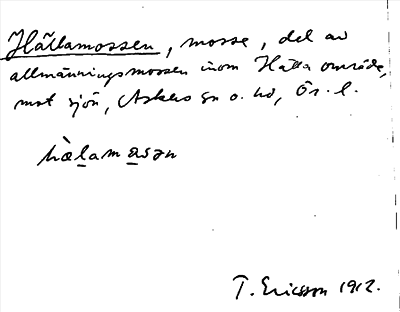 Hättamossen, mosse, del av
allmänningsmossen inom Hätta område,
mot sjön, Askers sn o. hd, Ör. l.
T. Ericsson 1912.